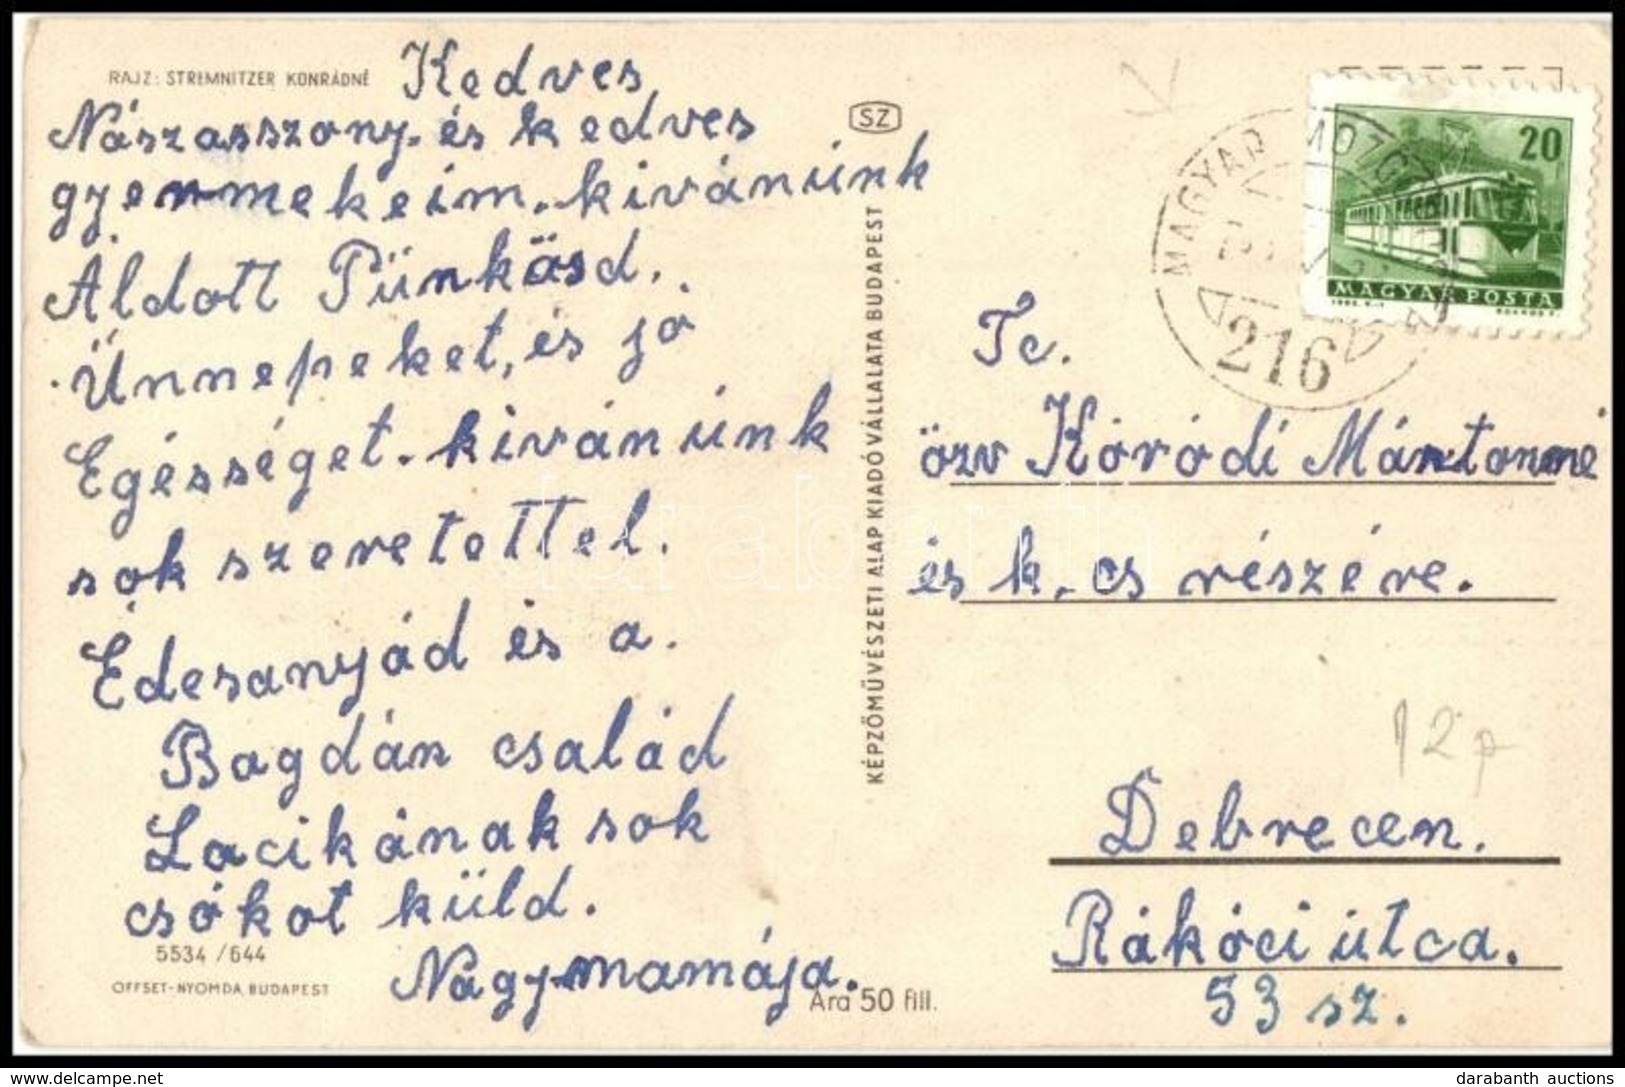 RAJZ: STREMNITZER KONRÁDNÉ
Kedves
Nászasszony. és kedves
gyermekeim. kivánúnk
Áldott Pünkösd.
Ünnepeket, és jo
Egésséget. kivánúnk
sok szeretettel.
Édesanyád és a.
Bagdán család
Lacikának sok
csókot küld.
Nagymamája.
5534 / 644
OFFSET-NYOMDA, BUDAPEST
SZ
KÉPZŐMŰVÉSZETI ALAP KIADÓVÁLLALATA BUDAPEST
Ára 50 fill.
20
MAGYAR POSTA
MAGYAR MOZGÓ
216
Tc.
özv Kóródi Mántonné
és k. cs részére.
12p
Debrecen.
Rákóci útca.
53 sz.
darabanth
delcampe.net
darabanth auctions